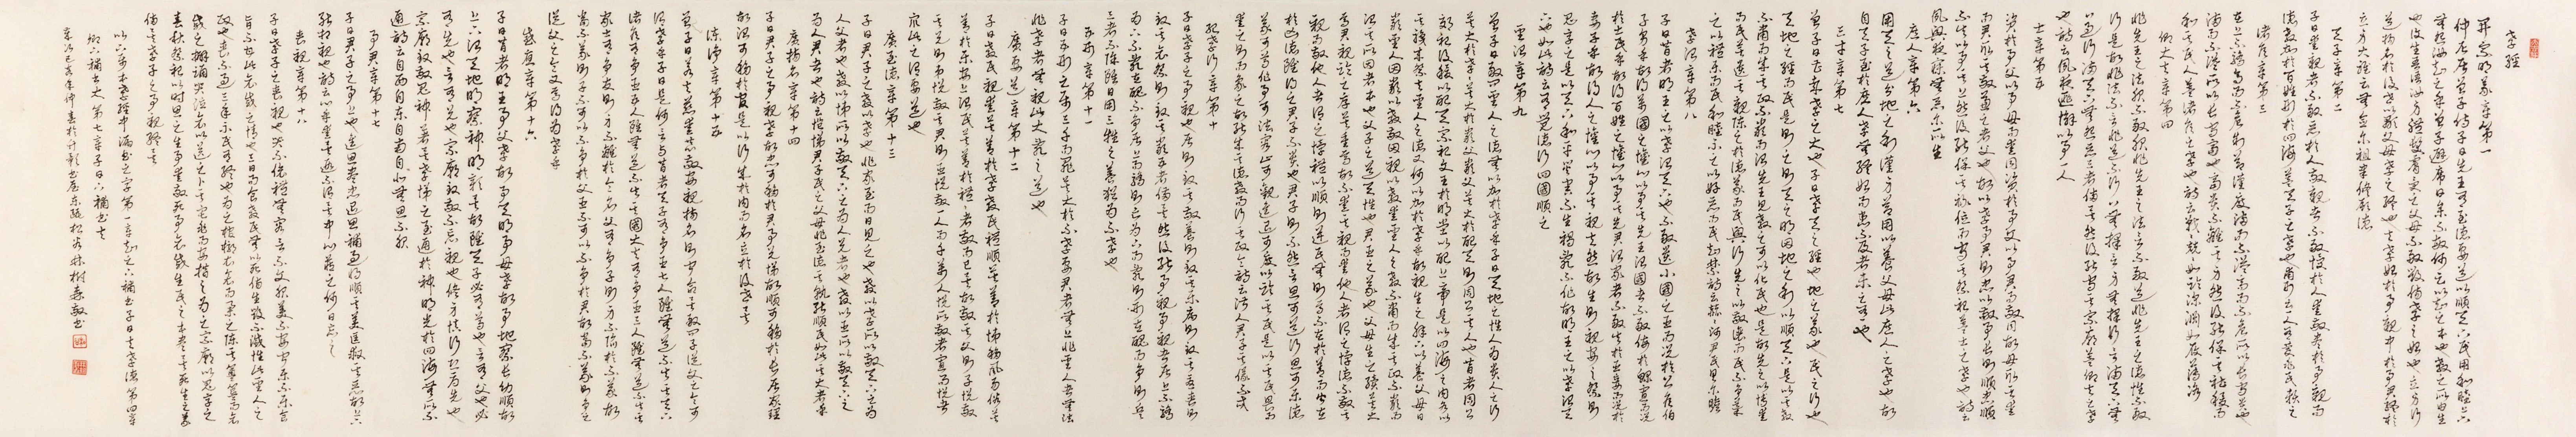 孝經
開宗明義章第一
仲尼居曾子侍子曰先王有至德要道以順天下民用和睦上下
無怨汝知之乎曾子避席曰參不敏何足以知之子曰夫孝德之本也教之所由生
也復坐吾語汝身體髮膚受之父母不敢毀傷孝之始也立身行
道揚名於後世以顯父母孝之終也夫孝始於事親中於事君終於
立身大雅云無念爾祖聿脩厥德
天子章第二
子曰愛親者不敢惡於人敬親者不敢慢於人愛敬盡於事親而
德教加於百姓刑於四海蓋天子之孝也甫刑云一人有慶兆民賴之
諸侯章第三
在上不驕高而不危制節謹度滿而不溢高而不危所以長守貴也
滿而不溢所以長守富也富貴不離其身然後能保其社稷而
和其民人蓋諸侯之孝也詩云戰戰兢兢如臨深淵如履薄冰
卿大夫章第四
非先王之法服不敢服非先王之法言不敢道非先王之德行不敢
行是故非法不言非道不行口無擇言身無擇行言滿天下無
口過行滿天下無怨惡三者備矣然後能守其宗廟蓋卿大夫之孝
也詩云夙夜匪懈以事一人
士章第五
資於事父以事母而愛同資於事父以事君而敬同故母取其愛
而君取其敬兼之者父也故以孝事君則忠以敬事長則順忠順
不失以事其上然後能保其祿位而守其祭祀蓋士之孝也詩云
夙興夜寐無忝爾所生
庶人章第六
用天之道分地之利謹身節用以養父母此庶人之孝也故
自天子至於庶人孝無終始而患不及者未之有也
三才章第七
曾子曰甚哉孝之大也子曰夫孝天之經也地之義也民之行也
天地之經而民是則之則天之明因地之利以順天下是以其教
不肅而成其政不嚴而治先王見教之可以化民也是故先之以博愛
而民莫遺其親陳之於德義而民興行先之以敬讓而民不爭導
之以禮樂而民和睦示之以好惡而民知禁詩云赫赫師尹民具爾瞻
孝治章第八
子曰昔者明王之以孝治天下也不敢遺小國之臣而況於公侯伯
子男乎故得萬國之懽心以事其先王治國者不敢侮於鰥寡而況
於士民乎故得百姓之懽心以事其先君治家者不敢失於臣妾而況於
妻子乎故得人之懽心以事其親夫然故生則親安之祭則
鬼享之是以天下和平災害不生禍亂不作故明王之以孝治天
下也如此詩云有覺德行四國順之
聖治章第九
曾子曰敢問聖人之德無以加於孝乎子曰天地之性人為貴人之行
莫大於孝孝莫大於嚴父嚴父莫大於配天則周公其人也昔者周公
郊祀后稷以配天宗祀文王於明堂以配上帝是以四海之內各以
其職來祭夫聖人之德又何以加於孝乎故親生之膝下以養父母日
嚴聖人因嚴以教敬因親以教愛聖人之教不肅而成其政不嚴而
治其所因者本也父子之道天性也君臣之義也父母生之續莫大
焉君親臨之厚莫重焉故不愛其親而愛他人者謂之悖德不敬其
親而敬他人者謂之悖禮以順則逆民無則焉不在於善而皆在
於凶德雖得之君子不貴也君子則不然言思可道行思可樂德
義可尊作事可法容止可觀進退可度以臨其民是以其民畏而
愛之則而象之故能成其德教而行其政令詩云淑人君子其儀不忒
紀孝行章第十
子曰孝子之事親也居則致其敬養則致其樂病則致其憂喪則
致其哀祭則致其嚴五者備矣然後能事親事親者居上不驕
為下不亂在醜不爭居上而驕則亡為下而亂則刑在醜而爭則兵
三者不除雖日用三牲之養猶為不孝也
五刑章第十一
子曰五刑之屬三千而罪莫大於不孝要君者無上非聖人者無法
非孝者無親此大亂之道也
廣要道章第十二
子曰教民親愛莫善於孝教民禮順莫善於悌移風易俗莫
善於樂安上治民莫善於禮禮者敬而已矣故敬其父則子悅敬
其兄則弟悅敬其君則臣悅敬一人而千萬人悅所敬者寡而悅者
眾此之謂要道也
廣至德章第十三
子曰君子之教以孝也非家至而日見之也教以孝所以敬天下之為
人父者也教以悌所以敬天下之為人兄者也教以臣所以敬天下之
為人君者也詩云愷悌君子民之父母非至德其孰能順民如此其大者乎
廣揚名章第十四
子曰君子之事親孝故忠可移於君事兄悌故順可移於長居家理
故治可移於官是以行成於內而名立於後世矣
諫諍章第十五
曾子曰若夫慈愛恭敬安親揚名則聞命矣敢問子從父之令可
謂孝乎子曰是何言與昔者天子有爭臣七人雖無道不失其天下
諸侯有爭臣五人雖無道不失其國大夫有爭臣三人雖無道不失其
家士有爭友則身不離於令名父有爭子則身不陷於不義故
當不義則子不可以不爭於父臣不可以不爭於君故當不義則爭之
從父之令又焉得為孝乎
感應章第十六
子曰昔者明王事父孝故事天明事母孝故事地察長幼順故
上下治天地明察神明彰矣故雖天子必有尊也言有父也必
有先也言有兄也宗廟致敬不忘親也修身慎行恐辱先也
宗廟致敬鬼神著矣孝悌之至通於神明光於四海無所不
通詩云自西自東自南自北無思不服
事君章第十七
子曰君子之事上也進思盡忠退思補過將順其美匡救其惡故上下
能相親也詩云心乎愛矣遐不謂矣中心藏之何日忘之
喪親章第十八
子曰孝子之喪親也哭不偯禮無容言不文服美不安聞樂不樂食
旨不甘此哀戚之情也三日而食教民無以死傷生毀不滅性此聖人之
政也喪不過三年示民有終也為之棺槨衣衾而舉之陳其簠簋而哀
慼之擗踊哭泣哀以送之卜其宅兆而安措之為之宗廟以鬼享之
春秋祭祀以時思之生事愛敬死事哀慼生民之本盡矣死生之義
備矣孝子之事親終矣